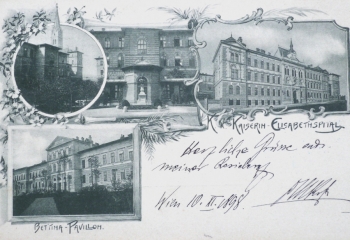 K. K. Kaiserin-Elisabethspital.
Herzliche Grüsse aus
meiner Residenz
Wien 10. II. 1898
Bettina-Pavillon.